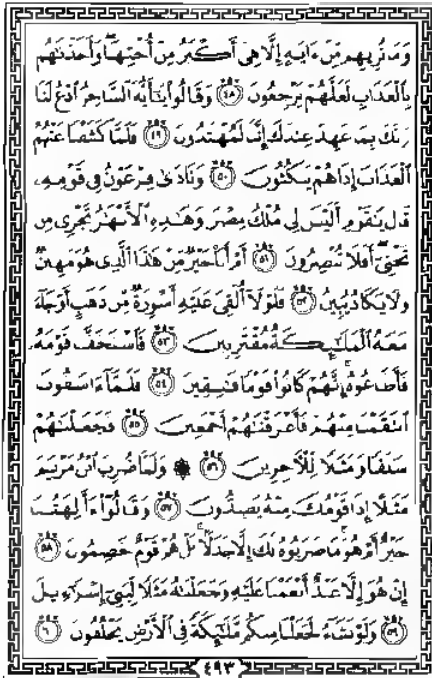 وَمَا نُرِيهِم مِّنْ ءَايَةٍ إِلَّا هِىَ أَكْبَرُ مِنْ أُخْتِهَا وَأَخَذْنَٰهُم
بِٱلْعَذَابِ لَعَلَّهُمْ يَرْجِعُونَ ٤٨ وَقَالُوا۟ يَٰٓأَيُّهَ ٱلسَّاحِرُ ٱدْعُ لَنَا
رَبَّكَ بِمَا عَهِدَ عِندَكَ إِنَّنَا لَمُهْتَدُونَ ٤٩ فَلَمَّا كَشَفْنَا عَنْهُمُ
ٱلْعَذَابَ إِذَا هُمْ يَنكُثُونَ ٥٠ وَنَادَىٰ فِرْعَوْنُ فِى قَوْمِهِۦ
قَالَ يَٰقَوْمِ أَلَيْسَ لِى مُلْكُ مِصْرَ وَهَٰذِهِ ٱلْأَنْهَٰرُ تَجْرِى مِن
تَحْتِىٓ أَفَلَا تُبْصِرُونَ ٥١ أَمْ أَنَا۠ خَيْرٌ مِّنْ هَٰذَا ٱلَّذِى هُوَ مَهِينٌ
وَلَا يَكَادُ يُبِينُ ٥٢ فَلَوْلَآ أُلْقِىَ عَلَيْهِ أَسْوِرَةٌ مِّن ذَهَبٍ أَوْ جَآءَ
مَعَهُ ٱلْمَلَٰٓئِكَةُ مُقْتَرِنِينَ ٥٣ فَٱسْتَخَفَّ قَوْمَهُۥ
فَأَطَاعُوهُ إِنَّهُمْ كَانُوا۟ قَوْمًا فَٰسِقِينَ ٥٤ فَلَمَّآ ءَاسَفُونَا
ٱنتَقَمْنَا مِنْهُمْ فَأَغْرَقْنَٰهُمْ أَجْمَعِينَ ٥٥ فَجَعَلْنَٰهُمْ
سَلَفًا وَمَثَلًا لِّلْءَاخِرِينَ ٥٦ ۞ وَلَمَّا ضُرِبَ ٱبْنُ مَرْيَمَ
مَثَلًا إِذَا قَوْمُكَ مِنْهُ يَصِدُّونَ ٥٧ وَقَالُوٓا۟ ءَأَٰلِهَتُنَا
خَيْرٌ أَمْ هُوَ مَا ضَرَبُوهُ لَكَ إِلَّا جَدَلًۢا بَلْ هُمْ قَوْمٌ خَصِمُونَ ٥٨
إِنْ هُوَ إِلَّا عَبْدٌ أَنْعَمْنَا عَلَيْهِ وَجَعَلْنَٰهُ مَثَلًا لِّبَنِىٓ إِسْرَٰٓءِيلَ
٥٩ وَلَوْ نَشَآءُ لَجَعَلْنَا مِنكُم مَّلَٰٓئِكَةً فِى ٱلْأَرْضِ يَخْلُفُونَ ٦٠
٤٩٣